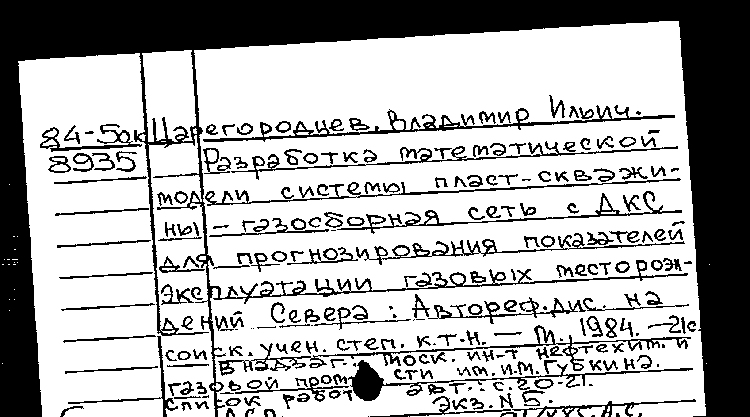 84-5ок Царегородцев, Владимир Ильич.
8935 Разработка математической
модели системы пласт-скважи-
ны - газосборная сеть с ДКС
для прогнозирования показателей
эксплуатации газовых месторож-
дений Севера : Автореф. дис. на
соиск. учен. степ. к.т.н. — М., 1984. — 21с
В надзаг.: Моск. ин-т нефтехим. и
газовой пром сти им. И.М. Губкина.
Список работ авт.: с. 20-21.
Экз. N 5.